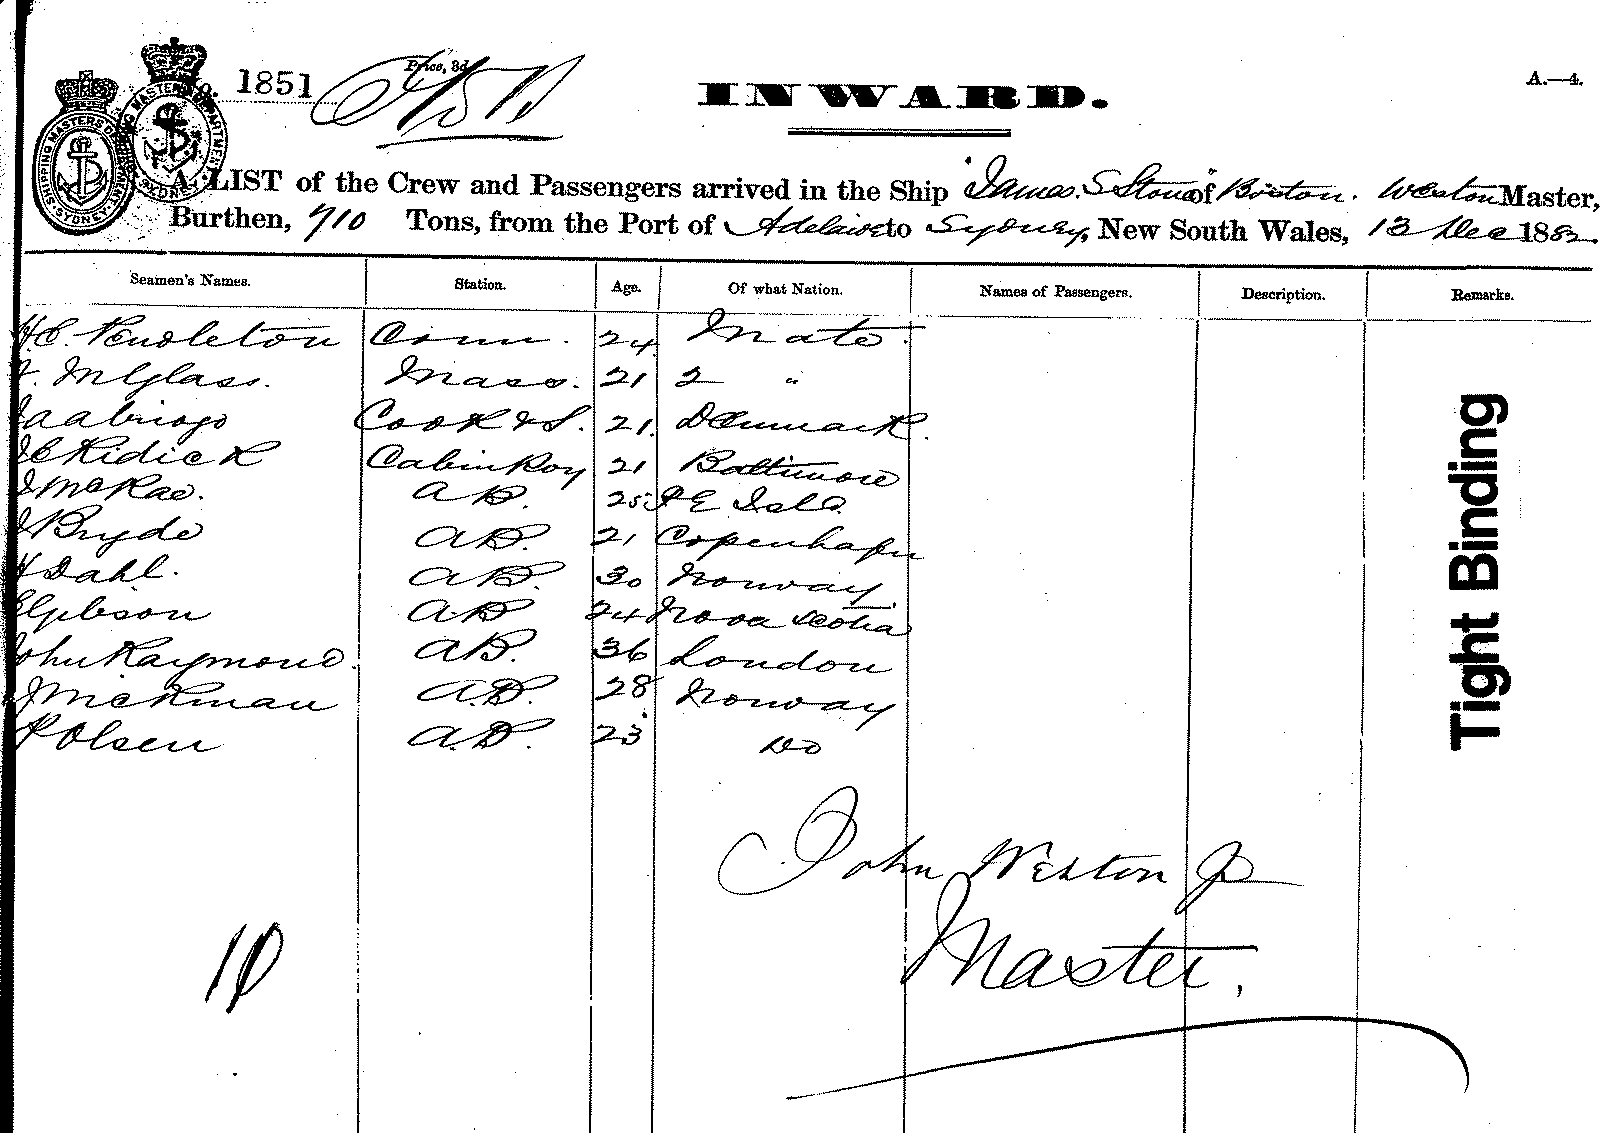 No. 1851 Price, 3d. INWARD. A.—4.
SHIPPING MASTERS DEPARTMENT SYDNEY
A LIST of the Crew and Passengers arrived in the Ship "James S Stone" of Boston. Weston Master,
Burthen, 710 Tons, from the Port of Adelaide to Sydney, New South Wales, 13 Dec 1882.
Seamen's Names. Station. Age. Of what Nation. Names of Passengers. Description. Remarks.
H.C. Pendleton Conn. 24 Mate.
McGlass. Mass. 21 2 "
Cook & S. 21. Denmark.
Ridick Cabin Boy 21 Baltimore
J McRae. AB. 25 P E Isld.
J Bryde AB. 21 Copenhagen
H Dahl. AB. 30 Norway.
E Gibson AB 24 Nova Scotia
John Raymond. AB. 36 London
J Wickman A.B. 28 Norway
P Olsen A.B. 23 Do
John Weston Jr
Master.
10
Tight Binding